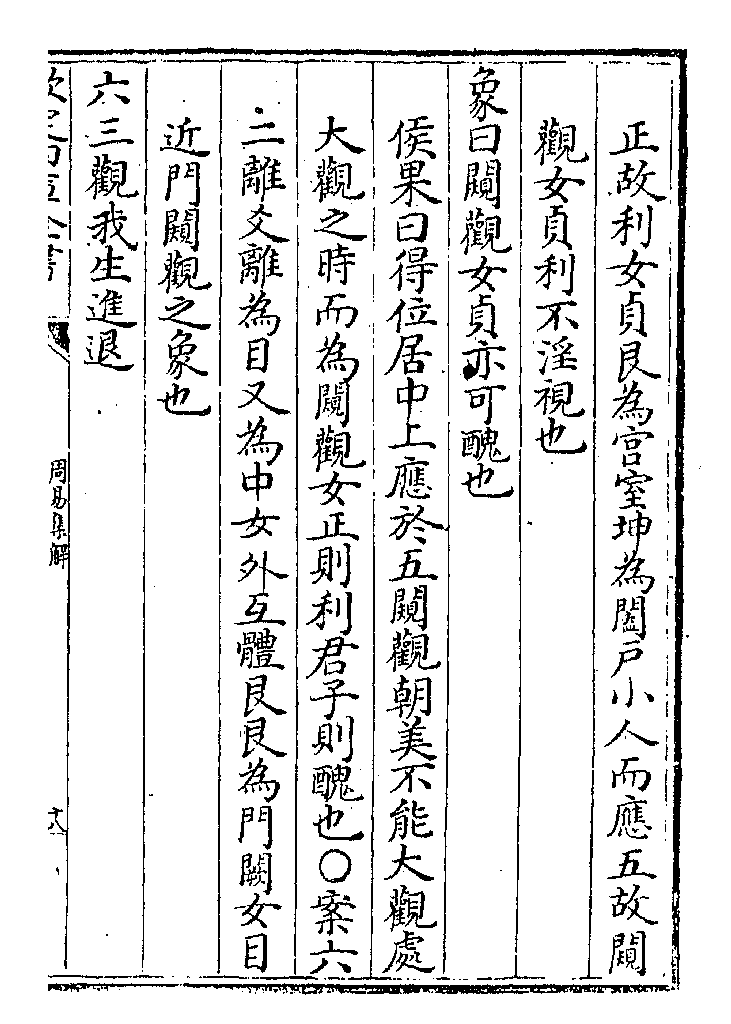 正故利女貞艮為宫室坤為闔戸小人而應五故闚
觀女貞利不淫視也
象曰闚觀女貞亦可醜也
侯果曰得位居中上應於五闚觀朝美不能大觀處
大觀之時而為闚觀女正則利君子則醜也○案六
二離爻離為目又為中女外互體艮艮為門闕女目
近門闚觀之象也
六三觀我生進退
欽定四庫全書
周易集解
十八